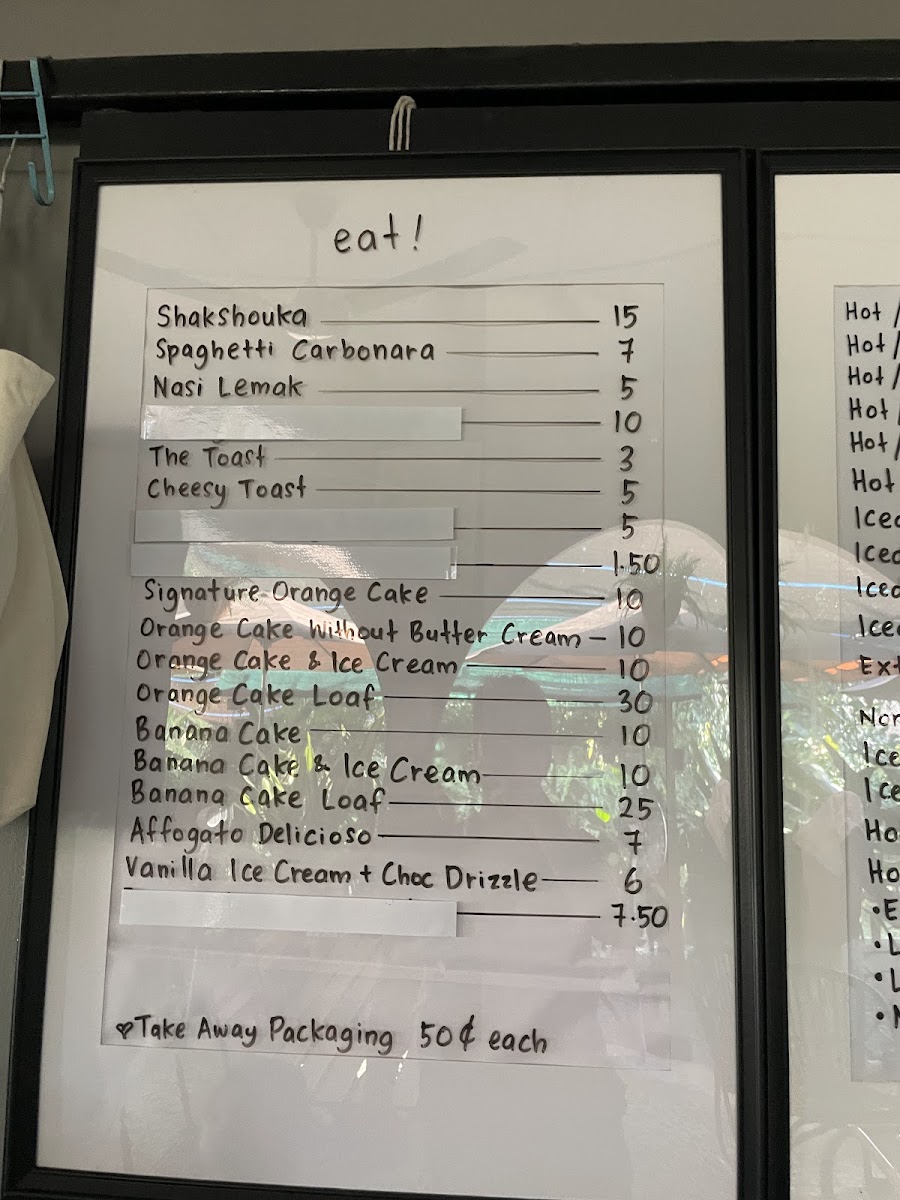 eat!
Shakshouka 15
Spaghetti Carbonara 7
Nasi Lemak 5
10
The Toast 3
Cheesy Toast 5
5
1.50
Signature Orange Cake 10
Orange Cake Without Butter Cream - 10
Orange Cake & Ice Cream 10
Orange Cake Loaf 30
Banana Cake 10
Banana Cake & Ice Cream 10
Banana Cake Loaf 25
Affogato Delicioso 7
Vanilla Ice Cream + Choc Drizzle 6
7.50
♥Take Away Packaging 50¢ each
Hot /
Hot /
Hot /
Hot /
Hot /
Hot
Iced
Iced
Iced
Iced
Ext
Non
Ice
Ice
Ho
Ho
•E
•L
•L
•M